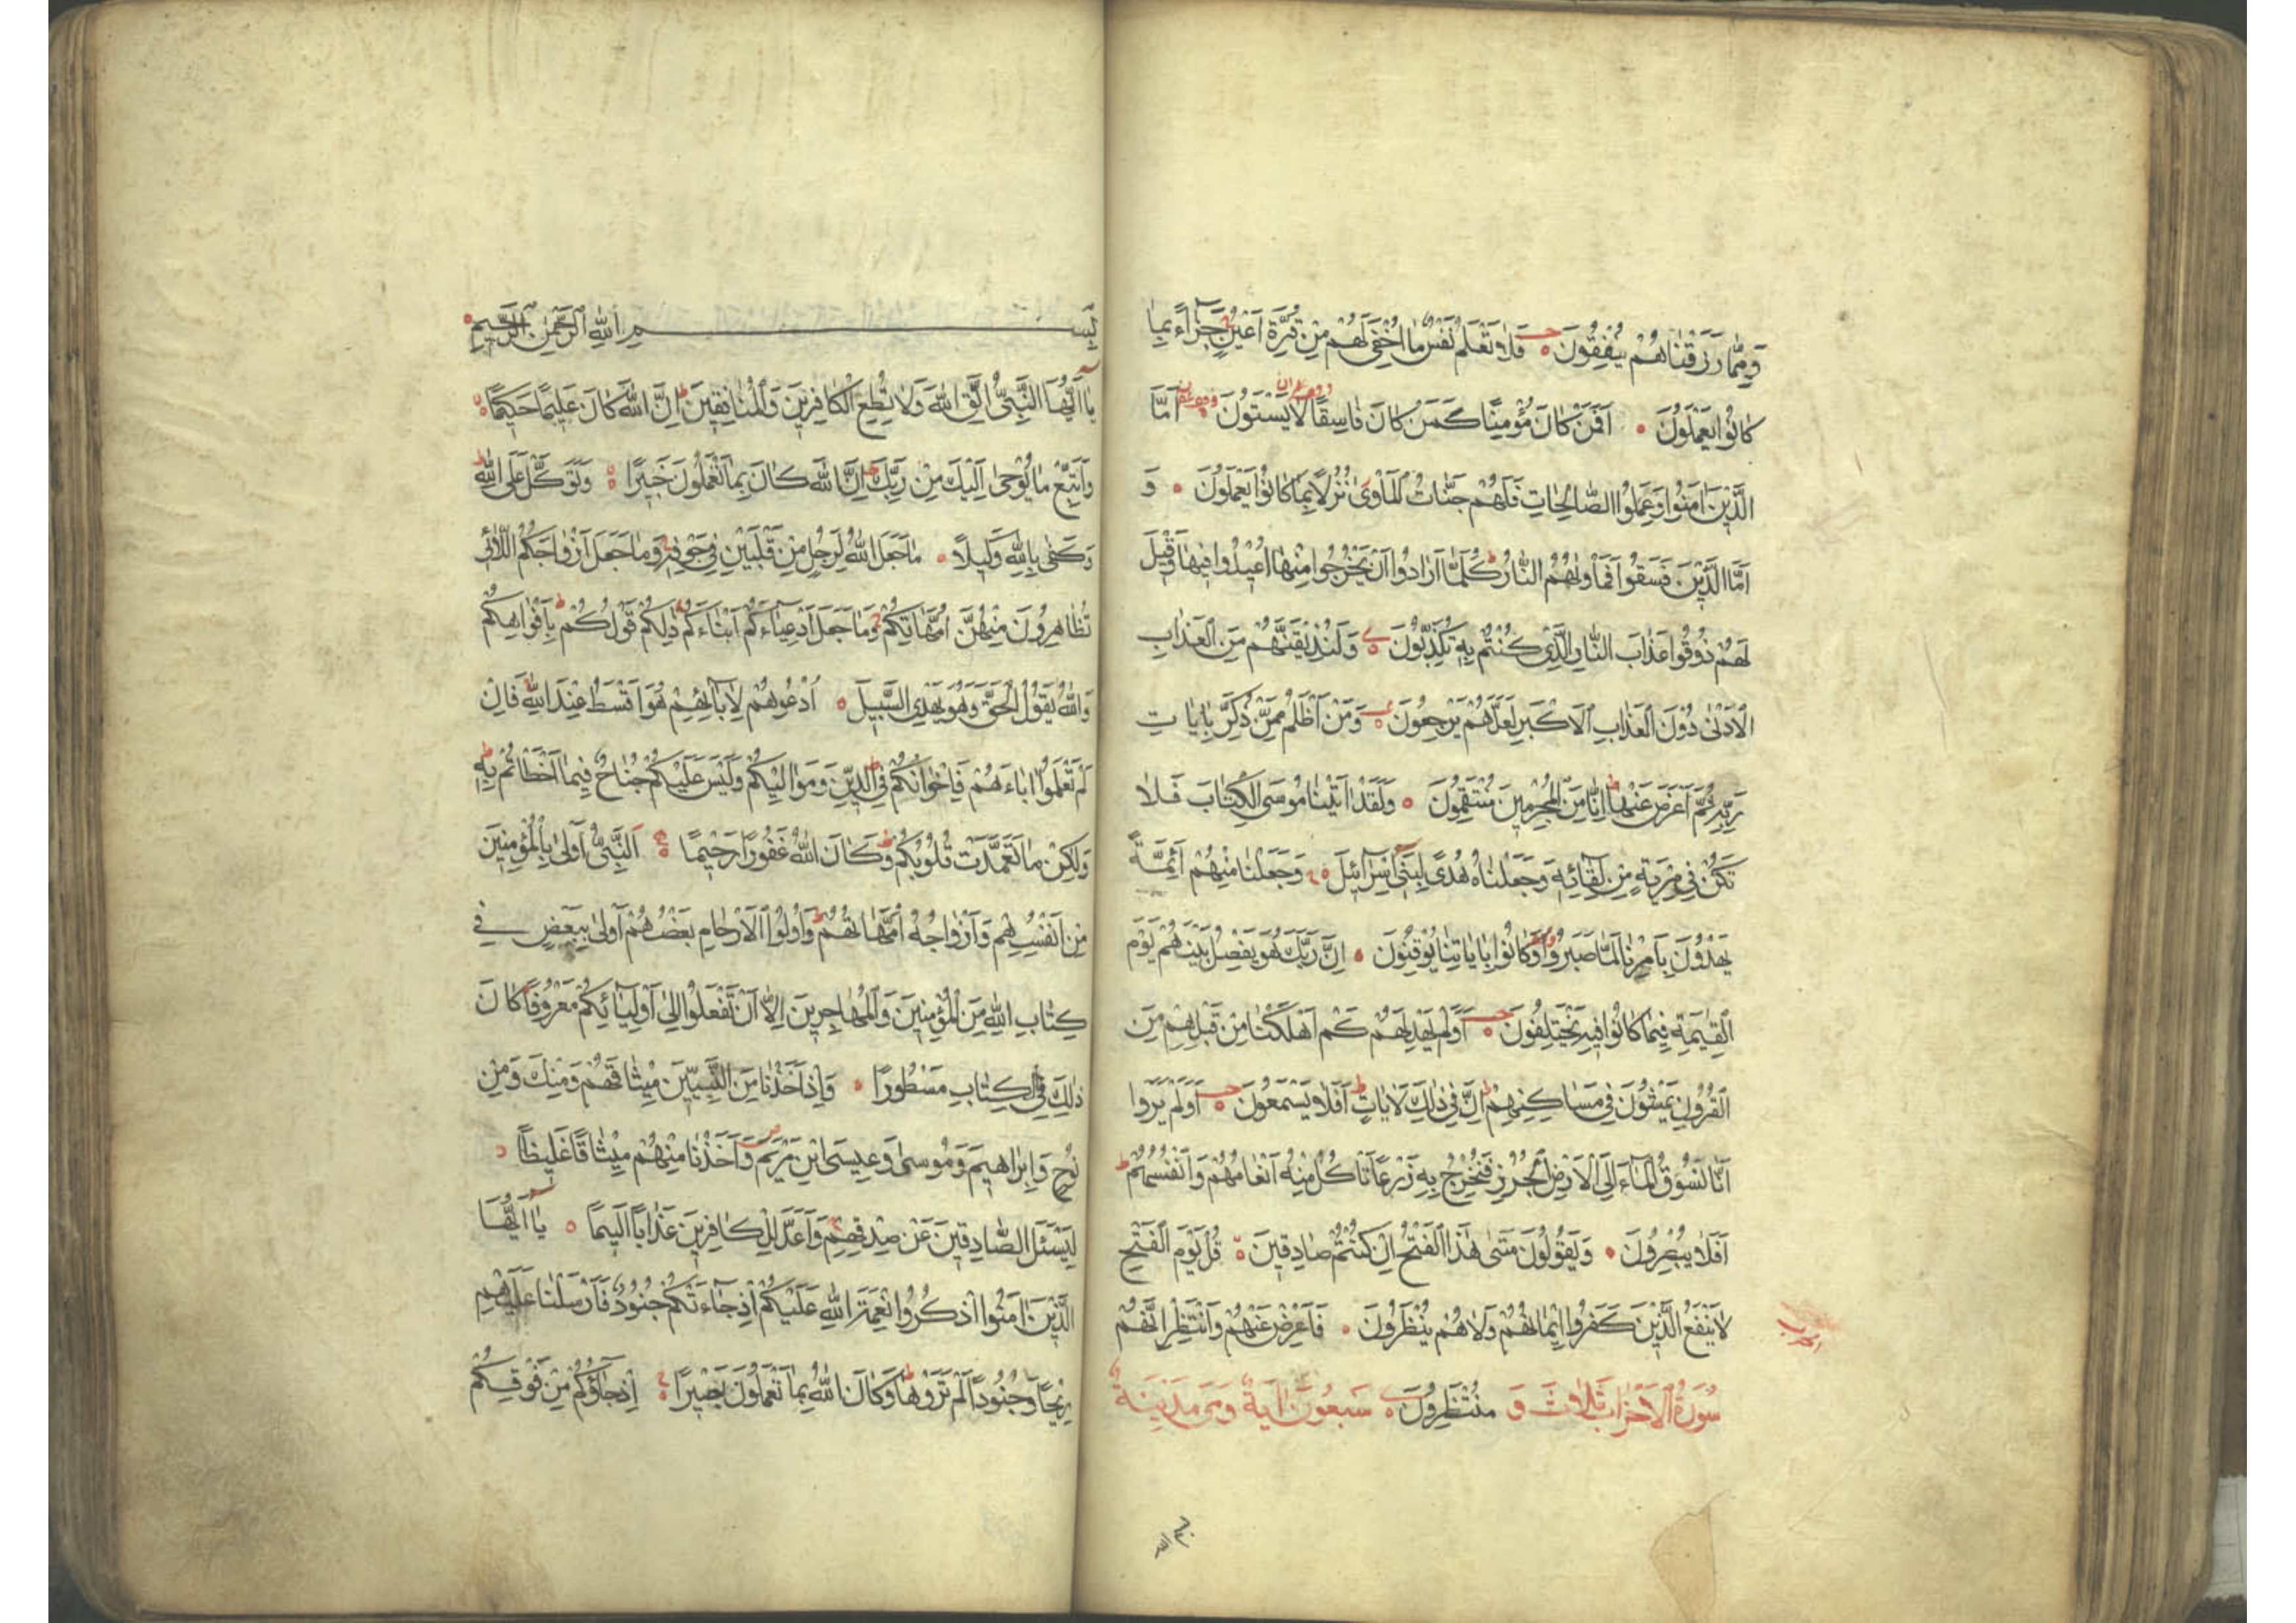 وَمِمَّا رَزَقْنَاهُمْ يُنْفِقُونَ فَلَا تَعْلَمُ نَفْسٌ مَا أُخْفِيَ لَهُمْ مِنْ قُرَّةِ أَعْيُنٍ جَزَاءً بِمَا
كَانُوا يَعْمَلُونَ أَفَمَنْ كَانَ مُؤْمِنًا كَمَنْ كَانَ فَاسِقًا لَا يَسْتَوُونَ أَمَّا
الَّذِينَ اٰمَنُوا وَعَمِلُوا الصَّالِحَاتِ فَلَهُمْ جَنَّاتُ الْمَأْوٰى نُزُلًا بِمَا كَانُوا يَعْمَلُونَ وَ
أَمَّا الَّذِينَ فَسَقُوا فَمَأْوٰيهُمُ النَّارُ كُلَّمَا أَرَادُوا أَنْ يَخْرُجُوا مِنْهَا أُعِيدُوا فِيهَا وَقِيلَ
لَهُمْ ذُوقُوا عَذَابَ النَّارِ الَّذِي كُنْتُمْ بِهِ تُكَذِّبُونَ وَلَنُذِيقَنَّهُمْ مِنَ الْعَذَابِ
الْأَدْنٰى دُونَ الْعَذَابِ الْأَكْبَرِ لَعَلَّهُمْ يَرْجِعُونَ وَمَنْ أَظْلَمُ مِمَّنْ ذُكِّرَ بِاٰيَاتِ
رَبِّهِ ثُمَّ أَعْرَضَ عَنْهَا إِنَّا مِنَ الْمُجْرِمِينَ مُنْتَقِمُونَ وَلَقَدْ اٰتَيْنَا مُوسَى الْكِتَابَ فَلَا
تَكُنْ فِي مِرْيَةٍ مِنْ لِقَائِهِ وَجَعَلْنَاهُ هُدًى لِبَنِي إِسْرَائِيلَ وَجَعَلْنَا مِنْهُمْ أَئِمَّةً
يَهْدُونَ بِأَمْرِنَا لَمَّا صَبَرُوا وَكَانُوا بِاٰيَاتِنَا يُوقِنُونَ إِنَّ رَبَّكَ هُوَ يَفْصِلُ بَيْنَهُمْ يَوْمَ
الْقِيٰمَةِ فِيمَا كَانُوا فِيهِ يَخْتَلِفُونَ أَوَلَمْ يَهْدِ لَهُمْ كَمْ أَهْلَكْنَا مِنْ قَبْلِهِمْ مِنَ
الْقُرُونِ يَمْشُونَ فِي مَسَاكِنِهِمْ إِنَّ فِي ذٰلِكَ لَاٰيَاتٍ أَفَلَا يَسْمَعُونَ أَوَلَمْ يَرَوْا
أَنَّا نَسُوقُ الْمَاءَ إِلَى الْأَرْضِ الْجُرُزِ فَنُخْرِجُ بِهِ زَرْعًا تَأْكُلُ مِنْهُ أَنْعَامُهُمْ وَأَنْفُسُهُمْ
أَفَلَا يُبْصِرُونَ وَيَقُولُونَ مَتٰى هٰذَا الْفَتْحُ إِنْ كُنْتُمْ صَادِقِينَ قُلْ يَوْمَ الْفَتْحِ
لَا يَنْفَعُ الَّذِينَ كَفَرُوا إِيمَانُهُمْ وَلَا هُمْ يُنْظَرُونَ فَأَعْرِضْ عَنْهُمْ وَانْتَظِرْ إِنَّهُمْ
سُورَةُ الْأَحْزَابِ ثَلَاثَ وَ مُنْتَظِرُونَ سَبْعُونَ اٰيَةً وَهِيَ مَدَنِيَّةٌ
بسم الله
بِسْمِ اللهِ الرَّحْمٰنِ الرَّحِيمِ
يَا أَيُّهَا النَّبِيُّ اتَّقِ اللهَ وَلَا تُطِعِ الْكَافِرِينَ وَالْمُنَافِقِينَ إِنَّ اللهَ كَانَ عَلِيمًا حَكِيمًا
وَاتَّبِعْ مَا يُوحٰى إِلَيْكَ مِنْ رَبِّكَ إِنَّ اللهَ كَانَ بِمَا تَعْمَلُونَ خَبِيرًا وَتَوَكَّلْ عَلَى اللهِ
وَكَفٰى بِاللهِ وَكِيلًا مَا جَعَلَ اللهُ لِرَجُلٍ مِنْ قَلْبَيْنِ فِي جَوْفِهِ وَمَا جَعَلَ أَزْوَاجَكُمُ اللَّائِي
تُظَاهِرُونَ مِنْهُنَّ أُمَّهَاتِكُمْ وَمَا جَعَلَ أَدْعِيَاءَكُمْ أَبْنَاءَكُمْ ذٰلِكُمْ قَوْلُكُمْ بِأَفْوَاهِكُمْ
وَاللهُ يَقُولُ الْحَقَّ وَهُوَ يَهْدِي السَّبِيلَ اُدْعُوهُمْ لِاٰبَائِهِمْ هُوَ أَقْسَطُ عِنْدَ اللهِ فَإِنْ
لَمْ تَعْلَمُوا اٰبَاءَهُمْ فَإِخْوَانُكُمْ فِي الدِّينِ وَمَوَالِيكُمْ وَلَيْسَ عَلَيْكُمْ جُنَاحٌ فِيمَا أَخْطَأْتُمْ بِهِ
وَلٰكِنْ مَا تَعَمَّدَتْ قُلُوبُكُمْ وَكَانَ اللهُ غَفُورًا رَحِيمًا اَلنَّبِيُّ أَوْلٰى بِالْمُؤْمِنِينَ
مِنْ أَنْفُسِهِمْ وَأَزْوَاجُهُ أُمَّهَاتُهُمْ وَأُولُوا الْأَرْحَامِ بَعْضُهُمْ أَوْلٰى بِبَعْضٍ فِي
كِتَابِ اللهِ مِنَ الْمُؤْمِنِينَ وَالْمُهَاجِرِينَ إِلَّا أَنْ تَفْعَلُوا إِلٰى أَوْلِيَائِكُمْ مَعْرُوفًا كَانَ
ذٰلِكَ فِي الْكِتَابِ مَسْطُورًا وَإِذْ أَخَذْنَا مِنَ النَّبِيِّينَ مِيثَاقَهُمْ وَمِنْكَ وَمِنْ
نُوحٍ وَإِبْرَاهِيمَ وَمُوسٰى وَعِيسَى ابْنِ مَرْيَمَ وَأَخَذْنَا مِنْهُمْ مِيثَاقًا غَلِيظًا
لِيَسْئَلَ الصَّادِقِينَ عَنْ صِدْقِهِمْ وَأَعَدَّ لِلْكَافِرِينَ عَذَابًا أَلِيمًا يَا أَيُّهَا
الَّذِينَ اٰمَنُوا اذْكُرُوا نِعْمَةَ اللهِ عَلَيْكُمْ إِذْ جَاءَتْكُمْ جُنُودٌ فَأَرْسَلْنَا عَلَيْهِمْ
رِيحًا وَجُنُودًا لَمْ تَرَوْهَا وَكَانَ اللهُ بِمَا تَعْمَلُونَ بَصِيرًا إِذْ جَاؤُكُمْ مِنْ فَوْقِكُمْ